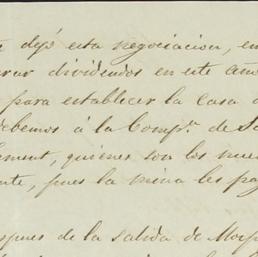 dejó esta negociacion, en
dividendos en este año
para establecer la casa
debemos á la Compª. de
quienes son los
pues la mina les pa
de la salida de